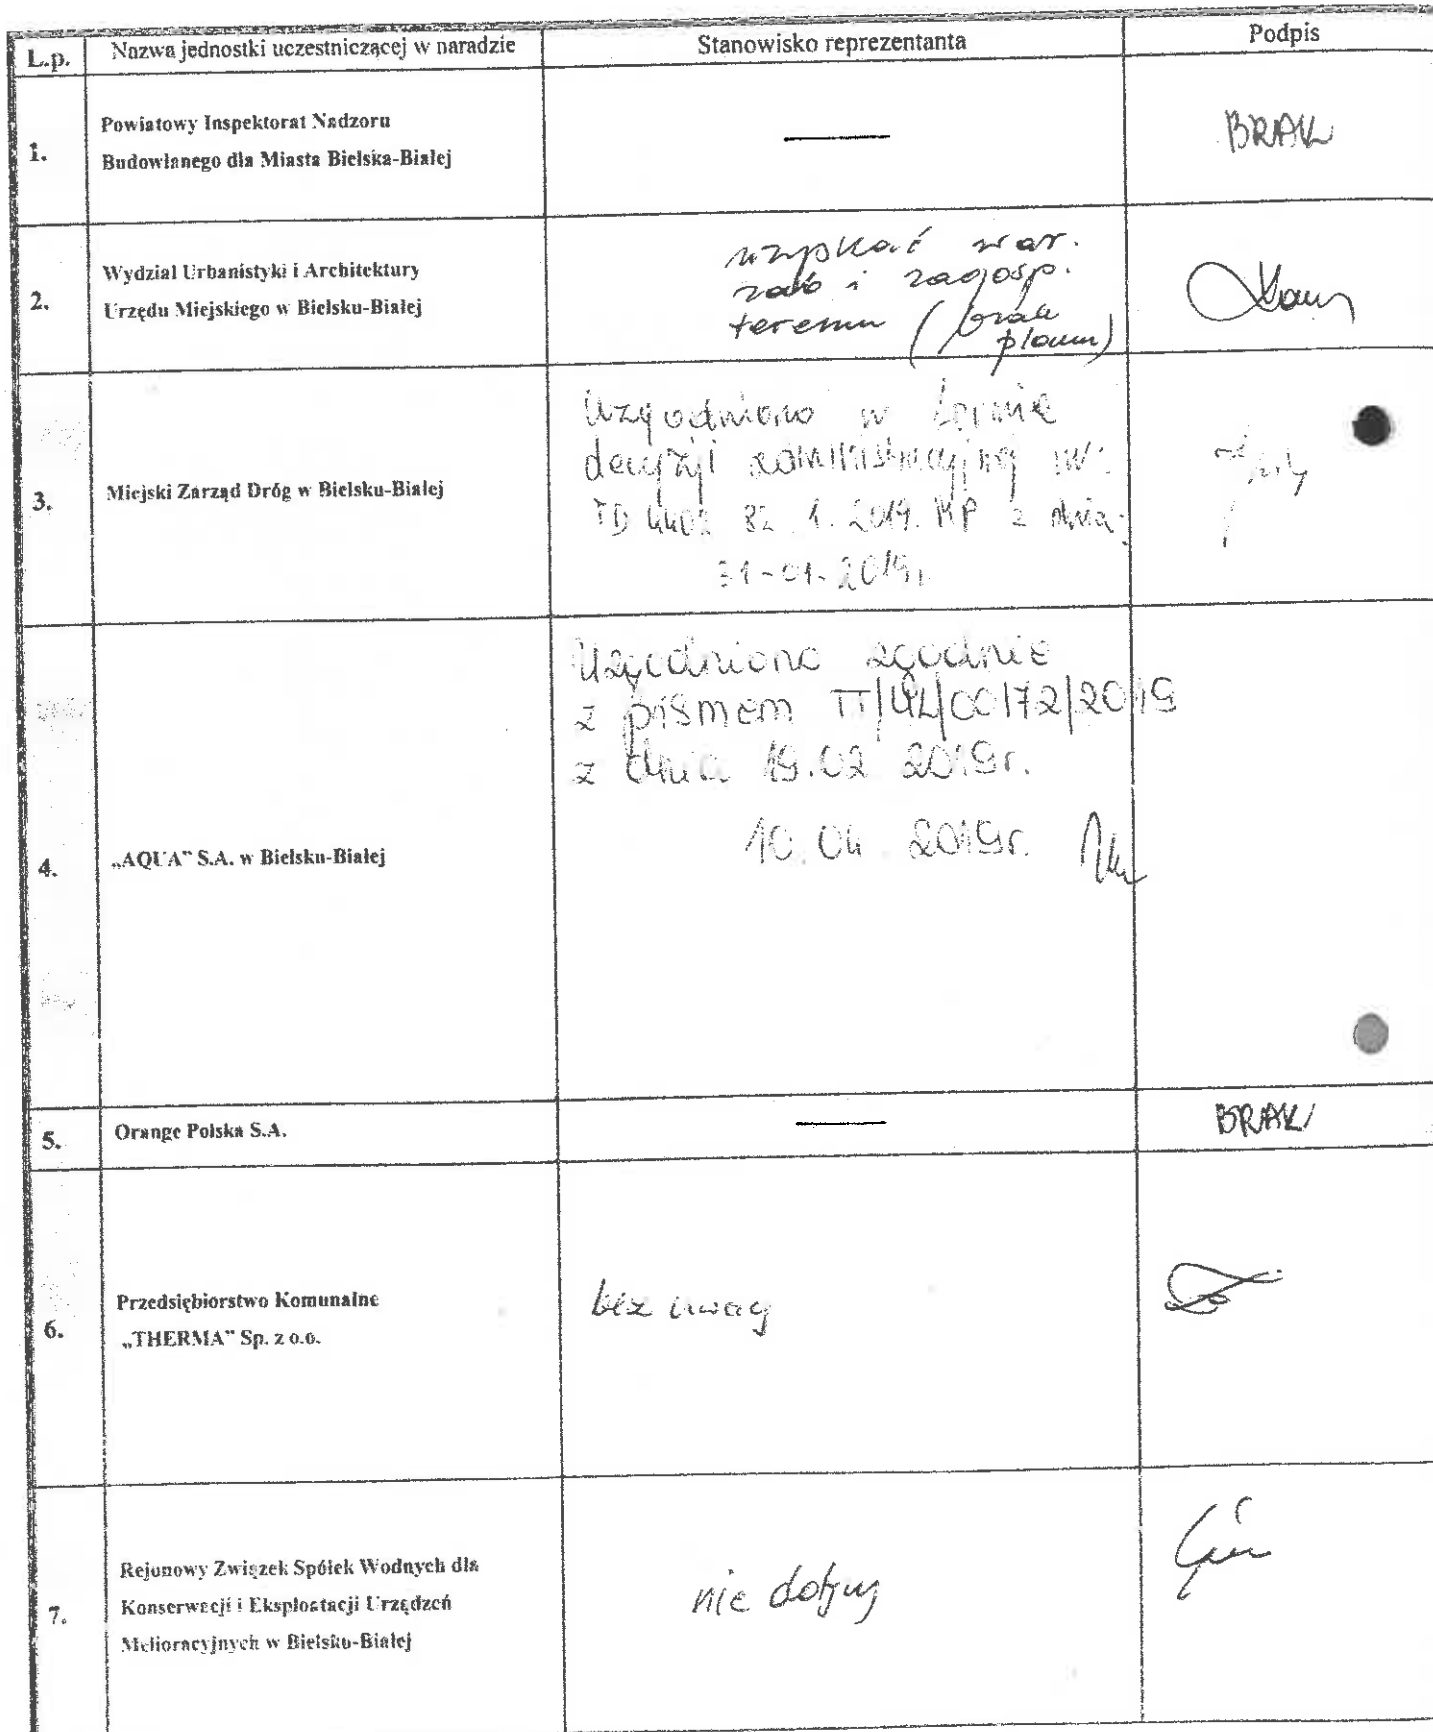 L.p. Nazwa jednostki uczestniczącej w naradzie Stanowisko reprezentanta Podpis
1. Powiatowy Inspektorat Nadzoru
Budowlanego dla Miasta Bielska-Białej
— BRAK
2. Wydział Urbanistyki i Architektury
Urzędu Miejskiego w Bielsku-Białej
uzyskać war.
zab i zagosp.
terenu (brak
planu)
3. Miejski Zarząd Dróg w Bielsku-Białej
Uzgodniono w formie
decyzji administracyjnej nr:
TD 4402 82 1.2019.MP z dnia
31-01-2019r
4. „AQUA” S.A. w Bielsku-Białej
Uzgodniono zgodnie
z pismem
z dnia 19.02 2019r.
10.04.2019r.
5. Orange Polska S.A. — BRAK
6. Przedsiębiorstwo Komunalne
„THERMA” Sp. z o.o.
bez uwag
7. Rejonowy Związek Spółek Wodnych dla
Konserwacji i Eksploatacji Urządzeń
Melioracyjnych w Bielsku-Białej
nie dotyczy